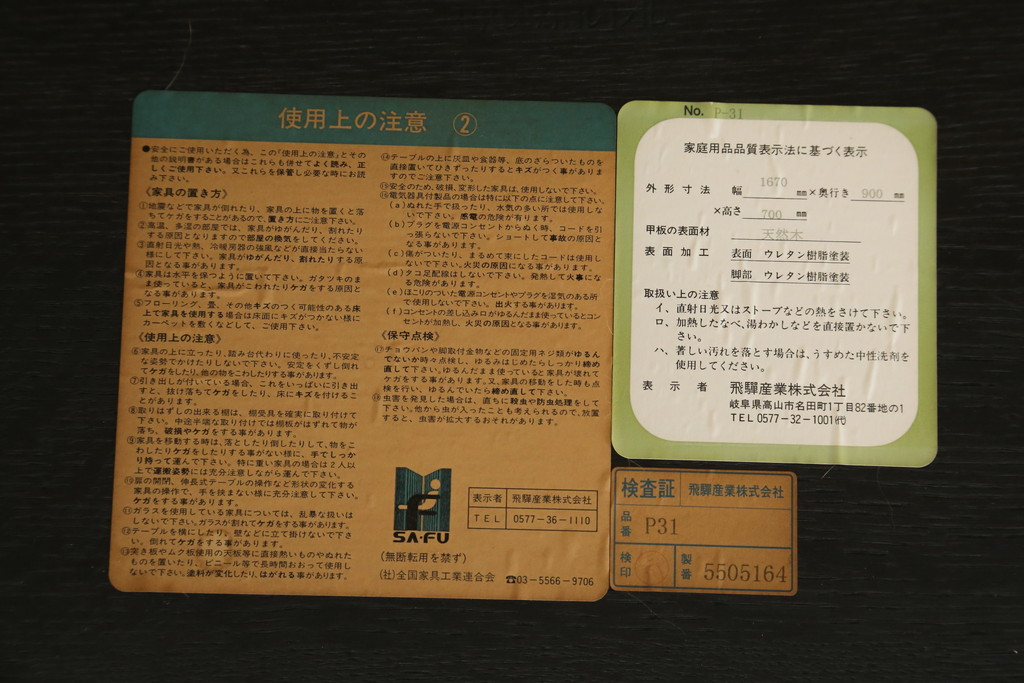 使用上の注意 ②
●安全にご使用いただく為、この「使用上の注意」とその
他の説明書がある場合はこれらも併せてよく読み、正
しくご使用下さい。又これらを保管し必要な時にお読
み下さい。
《家具の置き方》
①地震などで家具が倒れたり、家具の上に物を置くと落
ちてケガをすることがあるので、置き方にご注意下さい。
②高温、多湿の部屋では、家具がゆがんだり、割れたり
する原因となりますので部屋の換気をしてください。
③直射日光や熱、冷暖房器の強風などが直接当たらない
様にして下さい。家具がゆがんだり、割れたりする原
因となる事があります。
④家具は水平を保つように置いて下さい。ガタツキのま
ま使っていると、家具がこわれたりケガをする原因と
なる事があります。
⑤フローリング、畳、その他キズのつく可能性のある床
上で家具を使用する場合は床面にキズがつかない様に
カーペットを敷くなどして、ご使用下さい。
《使用上の注意》
⑥家具の上に立ったり、踏み台代わりに使ったり、不安定
な姿勢でかけたりしないで下さい。安定をくずし倒れ
てケガをしたり、他の物をこわしたりする事があります。
⑦引き出しが付いている場合、これをいっぱいに引き出
すと、抜け落ちてケガをしたり、床にキズを付けるこ
とがあります。
⑧取りはずしの出来る棚は、棚受具を確実に取り付けて
下さい。中途半端な取り付けでは棚板がはずれて物が
落ち、破損やケガをする事があります。
⑨家具を移動する時は、落としたり倒したりして、物をこ
わしたりケガをしたりする事がない様に、手でしっか
り持って運んで下さい。特に重い家具の場合は2人以
上で運搬姿勢には充分注意しながら運んで下さい。
⑩扉の開閉、伸長式テーブルの操作など形状の変化する
家具の操作で、手を挟まない様に充分注意して下さい。
ケガをする事があります。
⑪ガラスを使用している家具については、乱暴な扱いは
しないで下さい。ガラスが割れてケガをする事があります。
⑫テーブルを横にしたり、壁などに立て掛けないで下さ
い。倒れてケガをする事があります。
⑬突き板やムク板使用の天板等に直接熱いものやぬれた
ものを置いたり、ビニール等で長時間おおって使用し
ないで下さい。塗料が変化したり、はがれる事があります。
⑭テーブルの上に灰皿や食器等、底のざらついたものを
直接置いてひきずったりするとキズがつく事があります
すのでご注意下さい。
⑮安全のため、破損、変形した家具は、使用しないで下さい。
⑯電気器具付製品の場合は特に以下の点に注意して下さい。
(a)ぬれた手で扱ったり、水気の多い所では使用しな
いで下さい。感電の危険が有ります。
(b)プラグを電源コンセントからぬく時、コードを引
っ張らないで下さい。ショートして事故の原因と
なる事があります。
(c)傷がついたり、まるめて束にしたコードは使用し
ないで下さい。火災の原因になる事があります。
(d)タコ足配線はしないで下さい。発熱して火事にな
る危険があります。
(e)ほこりのついた電源コンセントやプラグを湿気のある所
で使用しないで下さい。出火する事があります。
(f)コンセントの差し込み口がゆるんだまま使っているとコンセ
ントが加熱し、火災の原因となる事があります。
《保守点検》
⑰チョウバンや脚取付金物などの固定用ネジ類がゆるん
でないか時々点検し、ゆるみはじめたらしっかり締め
直して下さい。ゆるんだまま使っていると家具が壊れて
ケガをする事があります。又、家具の移動をした時も点
検を行い、ゆるんでいたら締め直して下さい。
⑱虫害を発見した場合は、直ちに殺虫や防虫処理をして
下さい。他から虫が入ったことも考えられるので、放置
すると、虫害が拡大するおそれがあります。
SA·FU
表示者 飛騨産業株式会社
TEL 0577-36-1110
(無断転用を禁ず)
(社)全国家具工業連合会 ☎03-5566-9706
No. P-31
家庭用品品質表示法に基づく表示
外形寸法 幅 1670 mm×奥行き 900 mm
×高さ 700 mm
甲板の表面材 天然木
表面加工 表面 ウレタン樹脂塗装
脚部 ウレタン樹脂塗装
取扱い上の注意
イ、直射日光又はストーブなどの熱をさけて下さい。
ロ、加熱したなべ、湯わかしなどを直接置かないで下
さい。
ハ、著しい汚れを落とす場合は、うすめた中性洗剤を
使用してください。
表示者 飛驒産業株式会社
岐阜県高山市名田町1丁目82番地の1
TEL 0577-32-1001㈹
検査証 飛驒産業株式会社
品番 P31
検印 製番 5505164